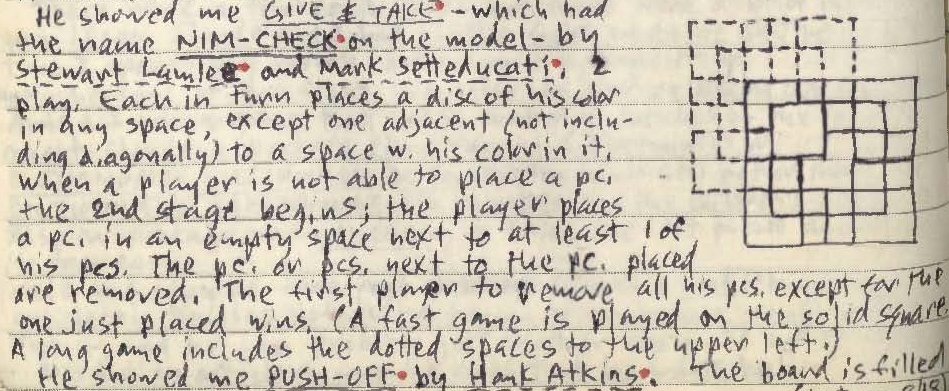 He showed me GIVE & TAKE - which had
the name NIM-CHECK on the model - by
Stewart Lamlee and Mark Setteducati. 2
play. Each in turn places a disc of his color
in any space, except one adjacent (not inclu-
ding diagonally) to a space w. his color in it.
When a player is not able to place a pc.
the 2nd stage begins; the player places
a pc. in an empty space next to at least 1 of
his pcs. The pc. or pcs. next to the pc. placed
are removed. The first player to remove all his pcs. except for the
one just placed wins. (A fast game is played on the solid square.
A long game includes the dotted spaces to the upper left.)
He showed me PUSH-OFF by Hank Atkins. The board is filled